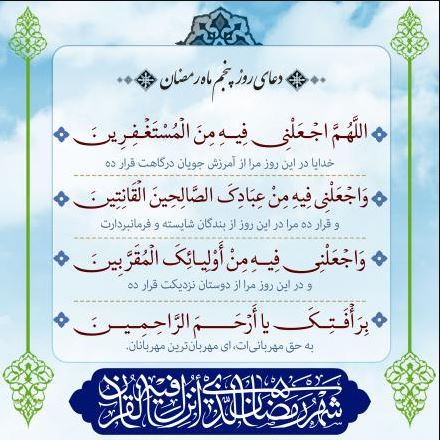 دعای روز پنجم ماه رمضان
اللَّهُمَّ اجْعَلْنِی فِیهِ مِنَ الْمُسْتَغْفِرِینَ
خدایا در این روز مرا از آمرزش جویان درگاهت قرار ده
وَاجْعَلْنِی فِیهِ مِنْ عِبَادِکَ الصَّالِحِینَ الْقَانِتِینَ
و قرار ده مرا در این روز از بندگان شایسته و فرمانبردارت
وَاجْعَلْنِی فِیهِ مِنْ أَوْلِیائِکَ الْمُقَرَّبِینَ
و در این روز مرا از دوستان نزدیکت قرار ده
بِرَأْفَتِکَ یا أَرْحَمَ الرَّاحِمِینَ
به حق مهربانی‌ات، ای مهربان‌ترین مهربانان.
شهر رمضان الذی أنزل فیه القرآن